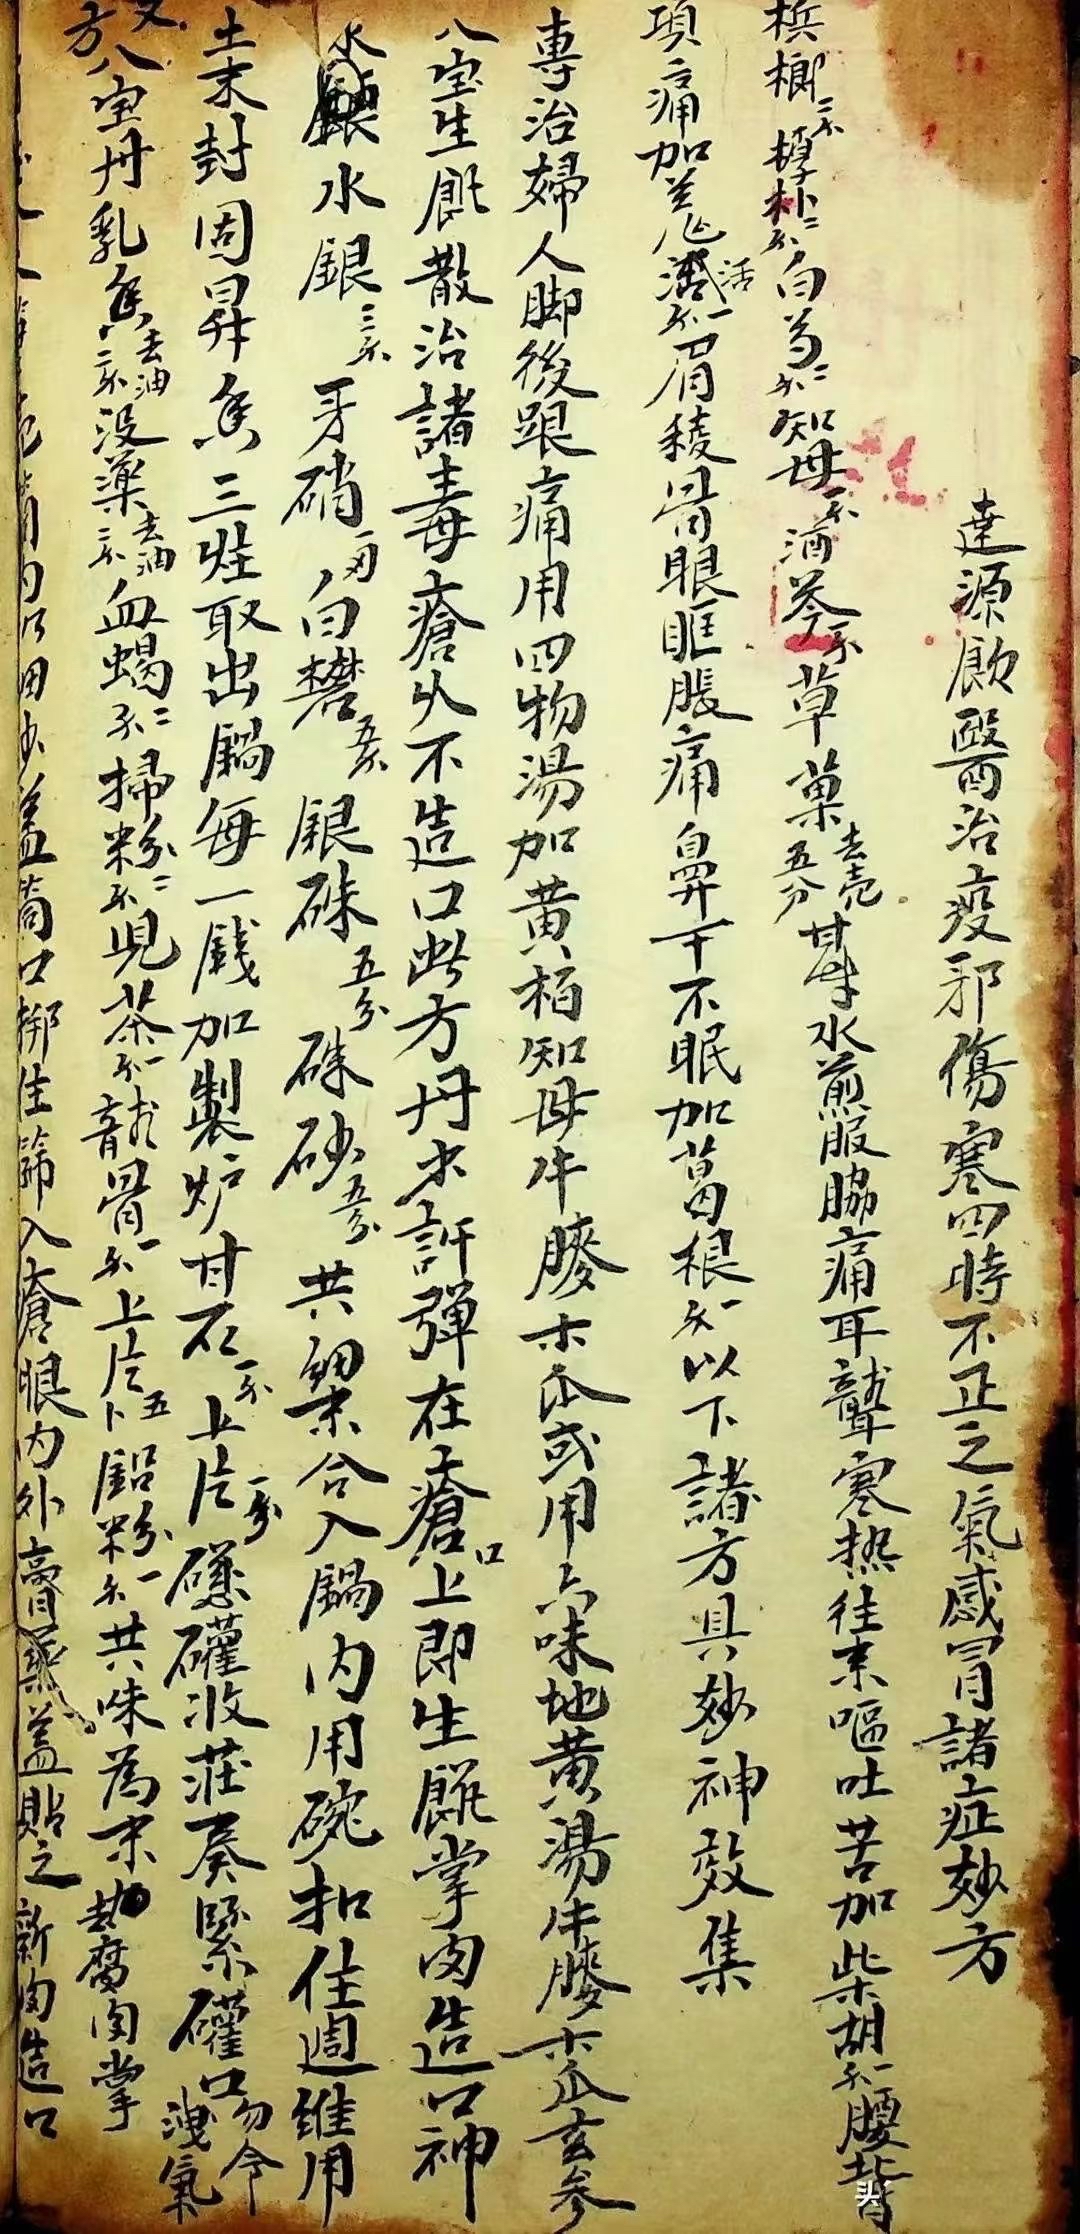 達源飲醫治疫邪傷寒四時不正之氣感冒諸症妙方
梹榔二不摱朴二不白芍二不知母一不酒芩一不草菓去壳五分甘草水煎服脇痛耳聾寒热往来嘔吐苦加柴胡一不腰背
項痛加羌活一不眉稜骨眼眶脹痛鼻干不眠加葛根一不以下諸方具妙神效集
專治婦人脚後跟痛用四物湯加黄栢知母牛膝木瓜或用六味地黄湯牛膝木瓜玄参
八宝生肌散治諸毒瘡久不造口此方丹少許弹在瘡口上即生肌掌肉造口神
水銀三不牙硝一刄白礬五不銀硃五分硃砂五分共細末合入鍋内用碗扣住週維用
土末封固昇焦三炷取出鍋每一錢加製炉甘石一不上片一分磁礶收莊奏緊礶口勿令洩氣
又方八宝丹乳焦去油二不没藥去油二不血蝎二不掃粉二不児茶一不龍骨一不上片五卜鉛粉一不共味為末去腐肉掌
筒口挷住篩入瘡眼内外膏藥盖貼之新肉造口
头